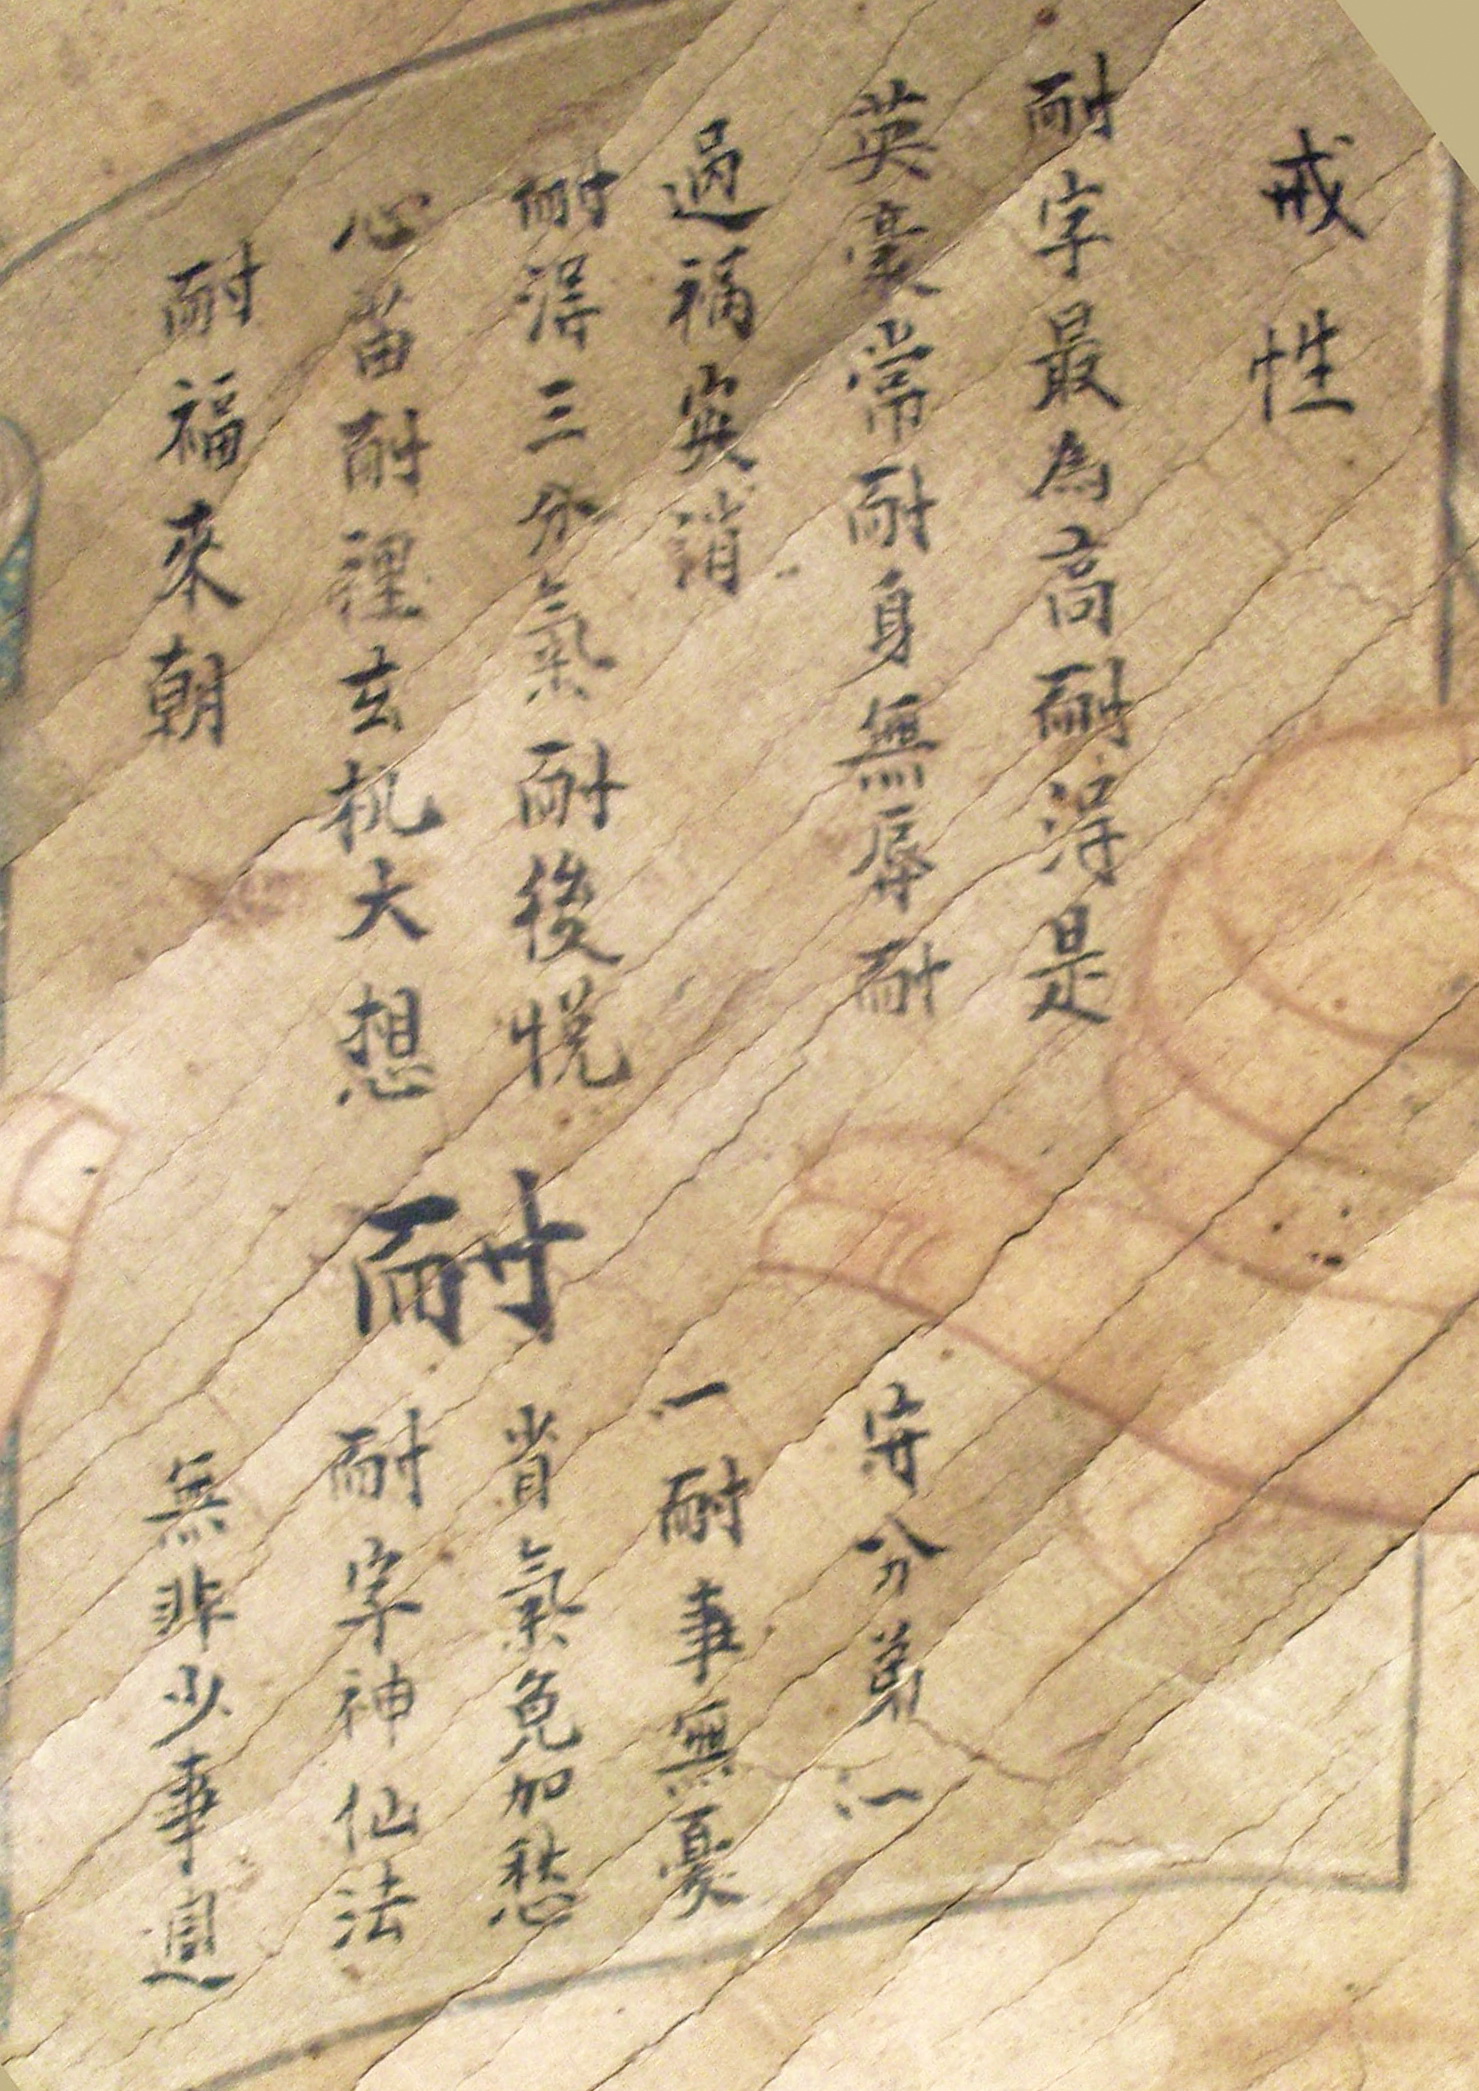 戒性
耐字最為高耐淂是
英豪常耐身無辱耐
過禍災消
耐淂三分氣耐後悅
心苗耐裡玄机大想
耐福來朝
耐
安分弟一
一耐事無憂
省氣免加愁
耐字神仙法
無非少事